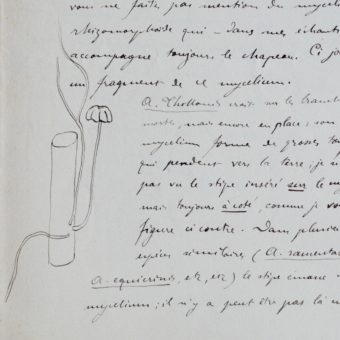 vous ne faites pas mention du mycel
rhizomorphoïde qui – dans mes échanti
accompagne toujours le chapeau. Ci jo
un fragment de ce mycelium.
A. Thollonis croit sur les branch
mortes, mais encore en place; son
mycelium forme de grosses tou
qui pendent vers la terre; je n
pas vu le stipe inséré sur le my
mais toujours à coté, comme je vo
figure ci contre. Dans plusieu
espèces similaires (A. ramenta
A. equicrinis, etc, etc) le stipe émane
mycelium; il n'y a peut être pas là un